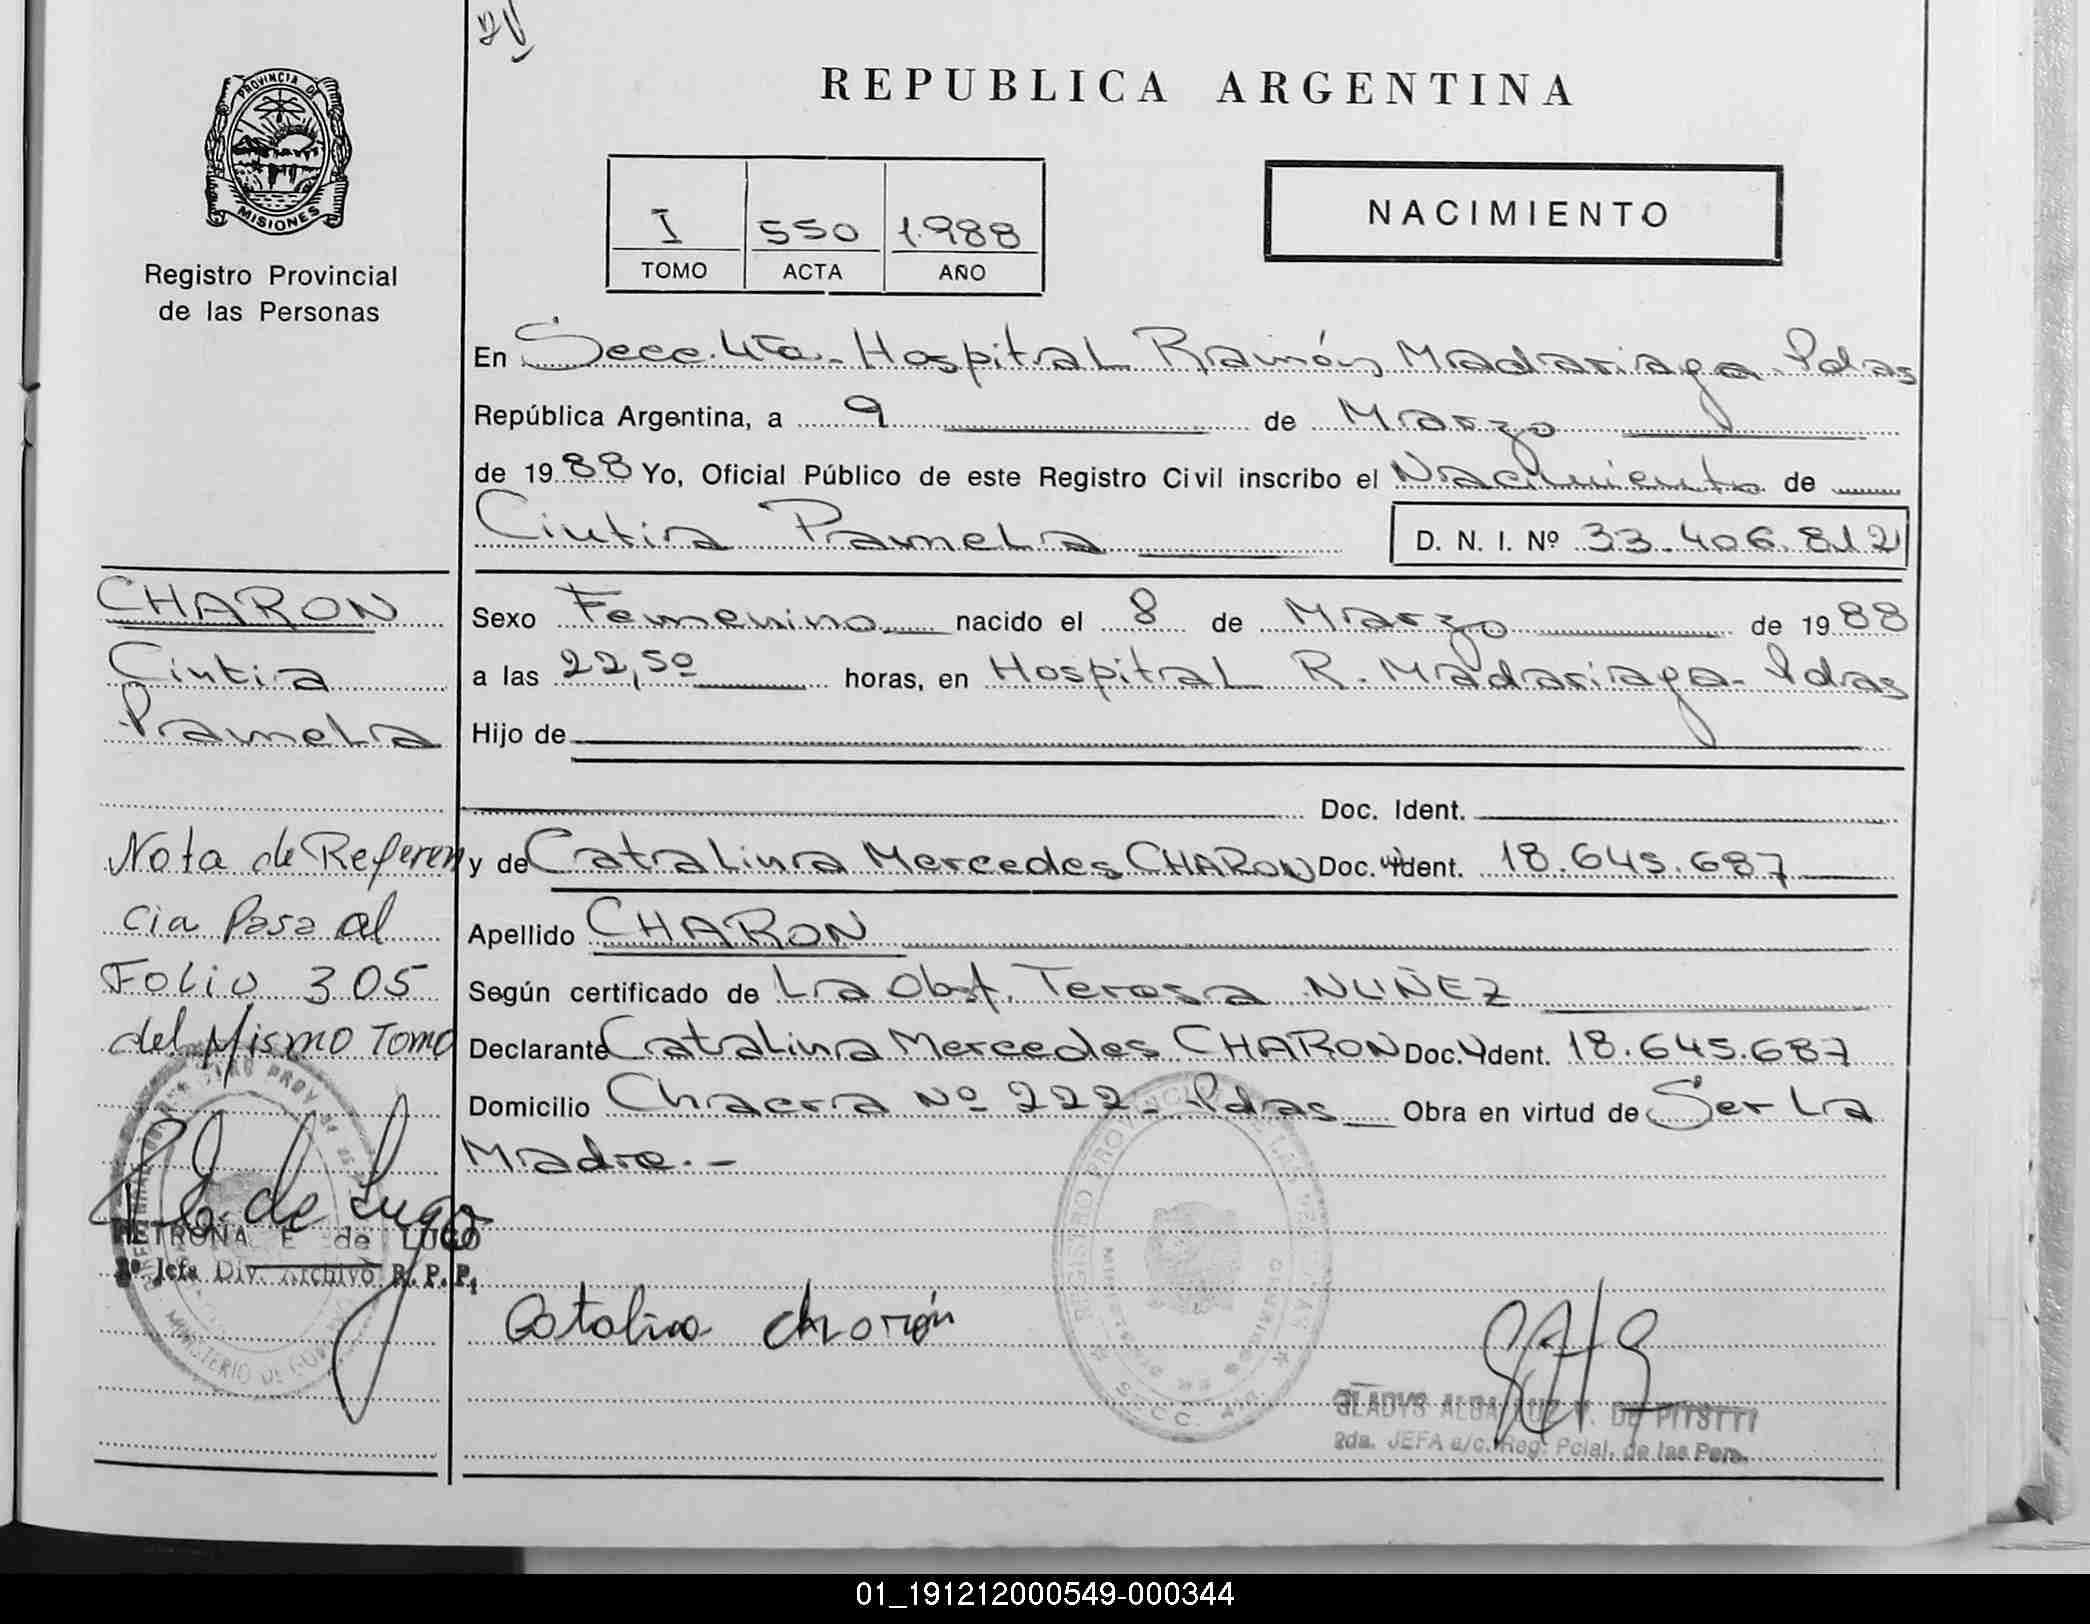 REPUBLICA ARGENTINA
PROVINCIA DE
MISIONES
Registro Provincial
de las Personas
I 550 1.988
TOMO ACTA AÑO
NACIMIENTO
En Secc. 4ta. Hospital Ramón Madariaga. Pdas
República Argentina, a 9 de Marzo
de 1988 Yo, Oficial Público de este Registro Civil inscribo el Nacimiento de
Cintia Pamela D. N. I. Nº 33.406.812
CHARON
Cintia
Pamela
Sexo Femenino nacido el 8 de Marzo de 1988
a las 22,50 horas, en Hospital R. Madariaga. Pdas
Hijo de
Doc. Ident.
y de Catalina Mercedes CHARON Doc. Ident. 18.645.687
Apellido CHARON
Según certificado de La Obst. Teresa NUÑEZ
Declarante Catalina Mercedes CHARON Doc. Ident. 18.645.687
Domicilio Chacra Nº 222 - Pdas Obra en virtud de Ser La
Madre.-
Nota de Referen
cia Pasa al
Folio 305
del Mismo Tomo
P. E. de Lugo
PETRONA E de LUGO
2º Jefa Div. Archivo R. P. P.
MINISTERIO DE
REGISTRO PROVINCIAL DE LAS PERSONAS
MISIONES
SECC. 4ta.
Catalina Charón
GLADYS ALBA DE
2da. JEFA a/c. Reg. Pcial. de las Pers.
01_191212000549-000344